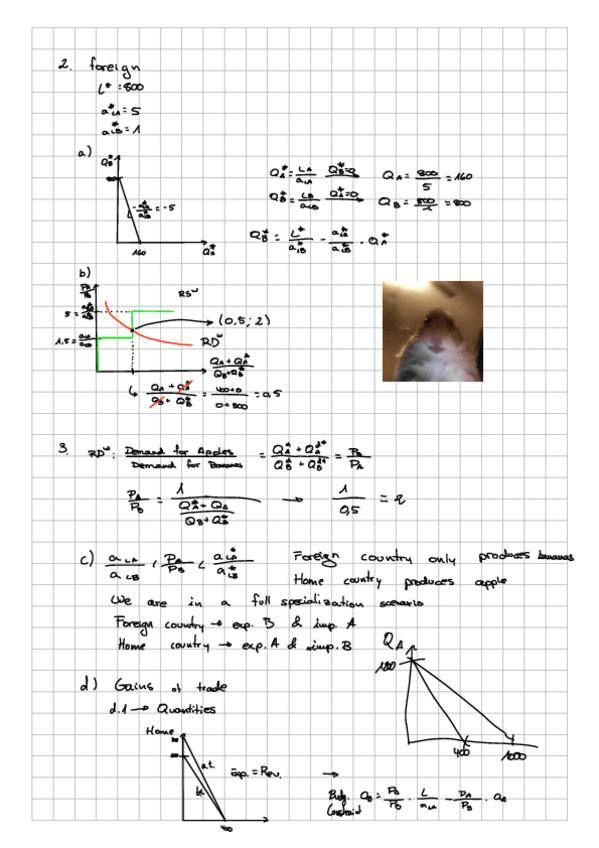 2. foreign
L* = 800
a*LA = 5
a*LB = 1
a)
QB*
-a*LA/a*LB = -5
160
QA*
QA* = LA/aLA QB*=0 QA = 800/5 = 160
QB* = LB/aLB QA*=0 QB = 800/1 = 800
QB* = L*/a*LB - a*LA/a*LB · QA*
b)
PA/PB
RSw
5 = a*LA/a*LB
(0,5; 2)
1,5 = aLA/aLB
RDw
QA + QA*/QB + QB*
↳ QA + QA*/QB + QB* = 400+0/0+800 = 0,5
3. RDw: Demand for Apples/Demand for Bananas = QA + QA*/QB + QB* = PB/PA
PA/PB = 1/(QA* + QA/QB + QB*) → 1/0,5 = 2
c) aLA/aLB < PA/PB < a*LA/a*LB Foreign country only produces bananas
Home country produces apple
We are in a full specialization scenario
Foreign country → exp. B & imp. A
Home country → exp. A & imp. B
QA
d) Gains of trade
d.1 → Quantities
400
1000
Home
a.t.
Exp. = Rev. →
Budg. Constraint QB = PA/PB · L/aLA - PA/PB · QA
400